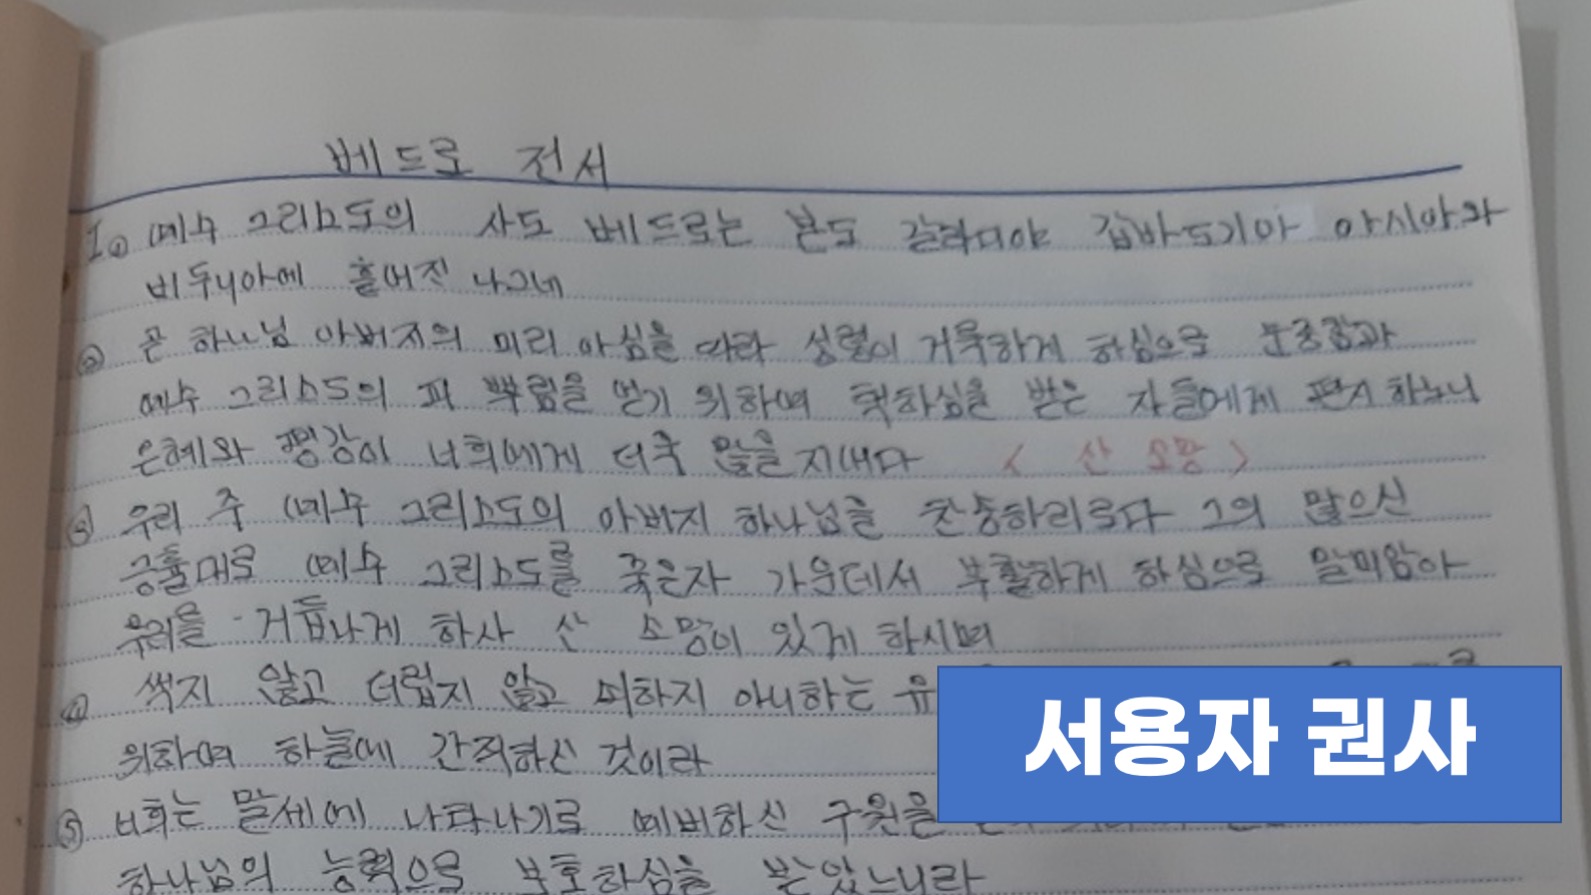 베드로 전서
1. ① 예수 그리스도의 사도 베드로는 본도 갈라디아 갑바도기아 아시아와
비두니아에 흩어진 나그네
② 곧 하나님 아버지의 미리 아심을 따라 성령이 거룩하게 하심으로 순종함과
예수 그리스도의 피 뿌림을 얻기 위하여 택하심을 받은 자들에게 편지 하노니
은혜와 평강이 너희에게 더욱 많을지어다 < 산 소망 >
③ 우리 주 예수 그리스도의 아버지 하나님을 찬송하리로다 그의 많으신
긍휼대로 예수 그리스도를 죽은자 가운데서 부활하게 하심으로 말미암아
우리를 거듭나게 하사 산 소망이 있게 하시며
④ 썩지 않고 더럽지 않고 쇠하지 아니하는 유
위하여 하늘에 간직하신 것이라
⑤ 너희는 말세에 나타나기로 예비하신 구원을
하나님의 능력으로 보호하심을 받았느니라
서용자 권사